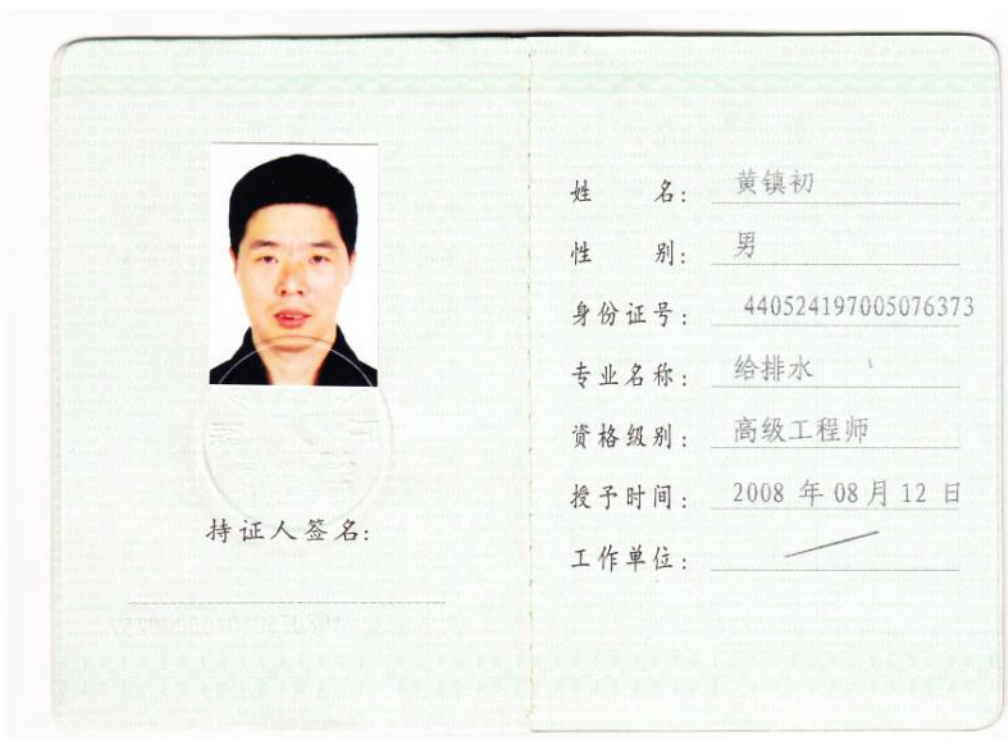 持证人签名:
姓 名: 黄镇初
性 别: 男
身份证号: 440524197005076373
专业名称: 给排水
资格级别: 高级工程师
授予时间: 2008 年 08 月 12 日
工作单位: